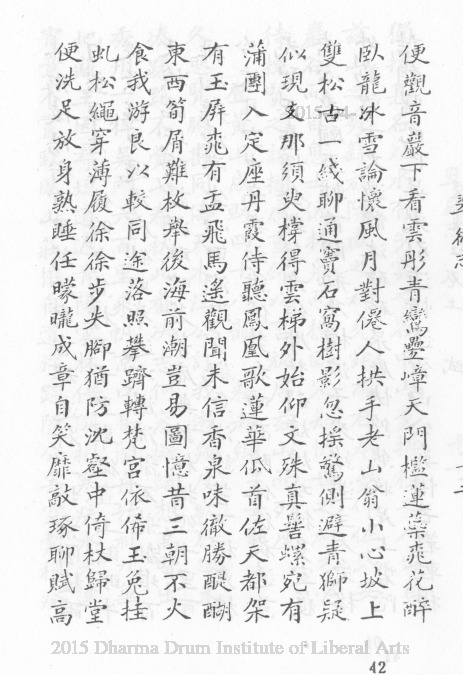 便觀音巖下看雲彤青鸞疊嶂天門檻蓮蘂桃花醉
臥龍冰雪論懷風月對僊人拱手老山翁小心坡上
雙松古一綫聊通竇石窩樹影忽搖驚側避青獅疑
似現支那須臾橕得雲梯外始仰文殊真髻螺宛有
蒲團入定座丹霞侍聽鳳凰歌蓮華低首佐天都架
有玉屏桃有盂飛馬遙觀聞未信香泉味徹勝醍醐
東西筍屑難枚舉後海前潮豈易圖憶昔三朝不火
食我游良以較同途落照攀躋轉梵宮依俙玉兔挂
虬松繩穿薄履徐徐步失腳猶防沈壑中倚杖歸堂
便洗足放身熟睡任曚曨成章自笑靡敲琢聊賦高
2015 Dharma Drum Institute of Liberal Arts
42